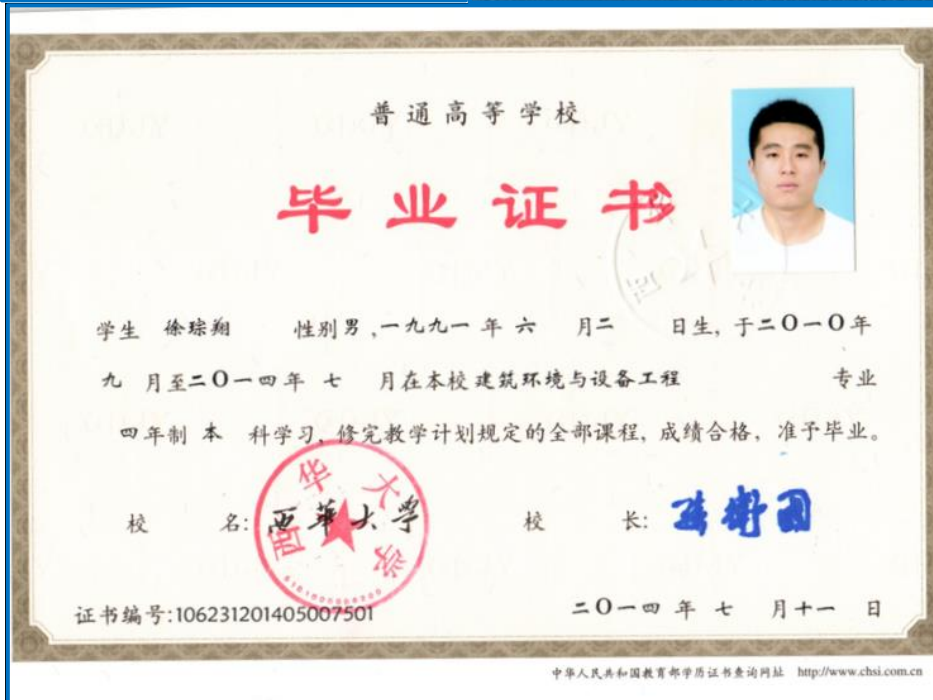 普通高等学校
毕业证书
学生 徐琮翔 性别男,一九九一年六月二日生,于二〇一〇年
九月至二〇一四年七月在本校建筑环境与设备工程 专业
四年制本科学习、修完教学计划规定的全部课程,成绩合格,准予毕业。
校 名:西華大學 校 长:
西华大学
证书编号:106231201405007501 二〇一四年七月十一日
中华人民共和国教育部学历证书查询网址 http://www.chsi.com.cn